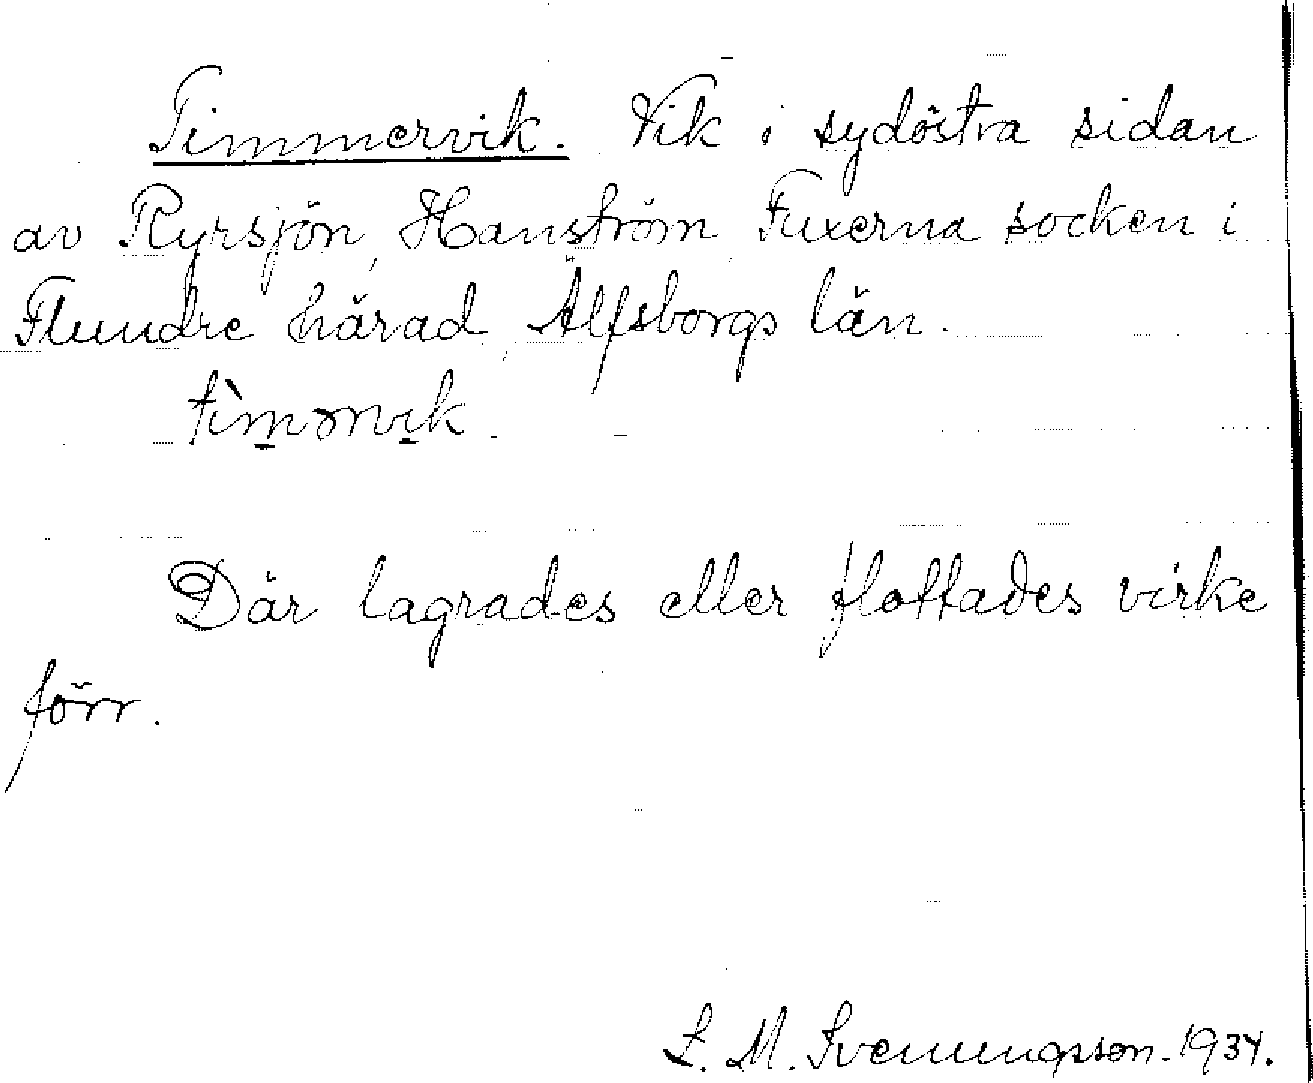 Timmervik. Vik i sydöstra sidan
av Ryrsjön, Hanström Fuxerna socken i
Flundre härad, Älfsborgs län.
tìmərvik.
Där lagrades eller flottades virke
förr.
L. M. Svenungsson. 1934.